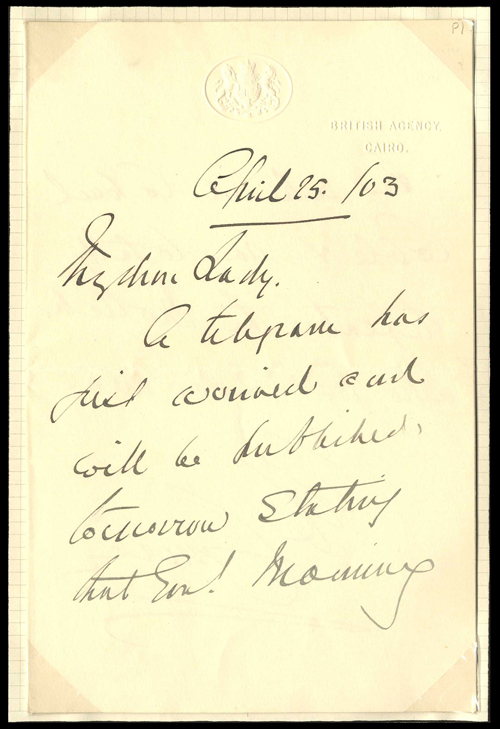 P1
BRITISH AGENCY,
CAIRO.
April 25. /03
My dear Lady.
A telegram has
just arrived and
will be published,
tomorrow stating
that Genl. Manning